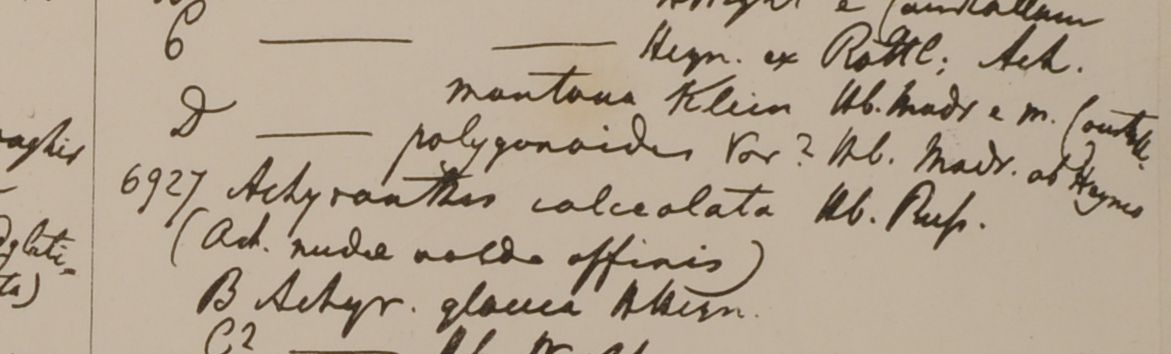 C — — Heyn. ex Rottl; Ach.
montana Klein Hb. Madr e m.
D — polygonoides Var? Hb. Madr. ab Heyne
6927 Achyranthes calceolata Hb. Russ.
(Ach. nudae valde affinis)
B Achyr. glauca HHeyn.
C? — Hb.